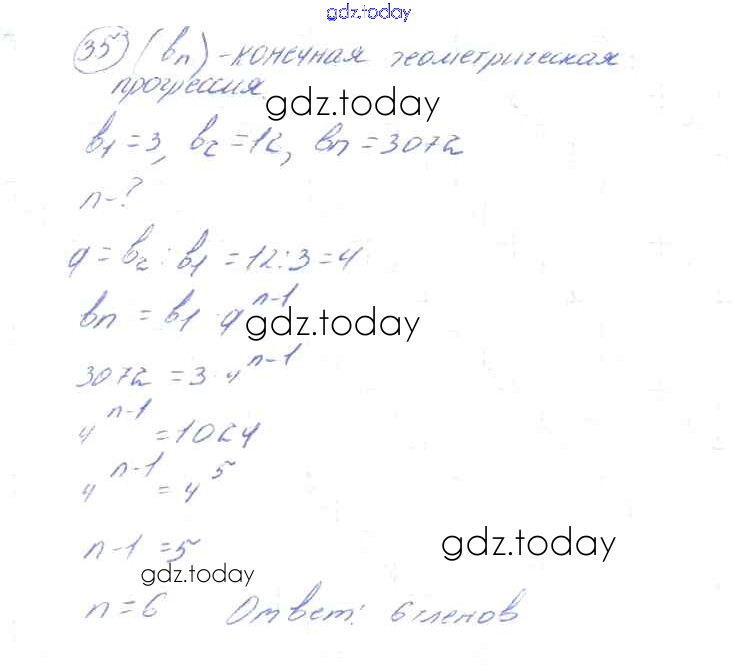 gdz.today
35 (bn) - конечная геометрическая
прогрессия.
gdz.today
b1 = 3, b2 = 12, bn = 3072
n - ?
q = b2 : b1 = 12 : 3 = 4
bn = b1 · q^n-1
gdz.today
3072 = 3 · 4^n-1
4^n-1 = 1024
4^n-1 = 4^5
n - 1 = 5
gdz.today
gdz.today
n = 6 Ответ: 6 членов